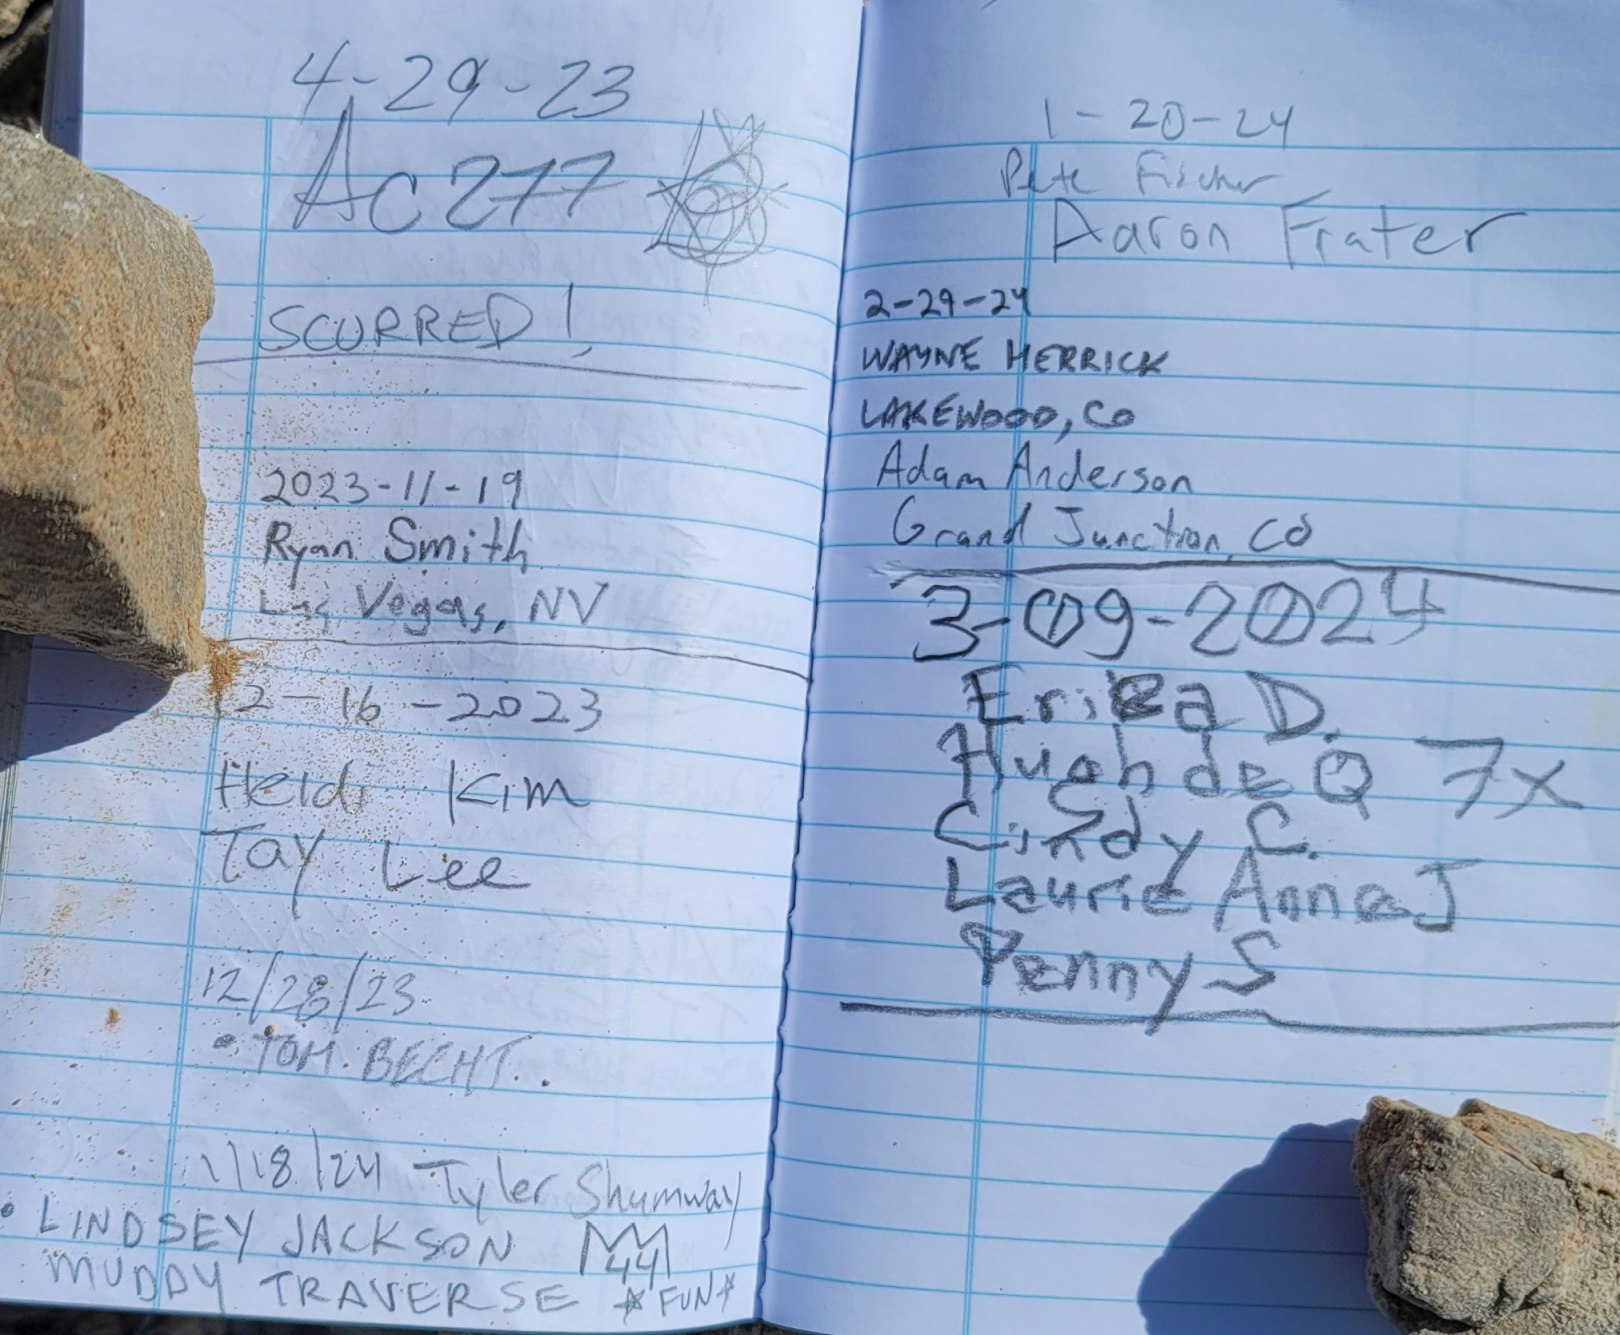 4-29-23
AC277
SCURRED!
2023-11-19
Ryan Smith
Las Vegas, NV
12-16-2023
Heidi Kim
Tay Lee
12/28/23
• TOM BECHT.
1/18/24 Tyler Shumway
• LINDSEY JACKSON
44
MUDDY TRAVERSE *FUN*
1-20-24
Pete Fischer
Aaron Frater
2-29-24
WAYNE HERRICK
LAKEWOOD, CO
Adam Anderson
Grand Junction, CO
3-09-2024
Erica D.
Hugh de Q 7x
Cindy C.
Laurie Anne J
Penny S